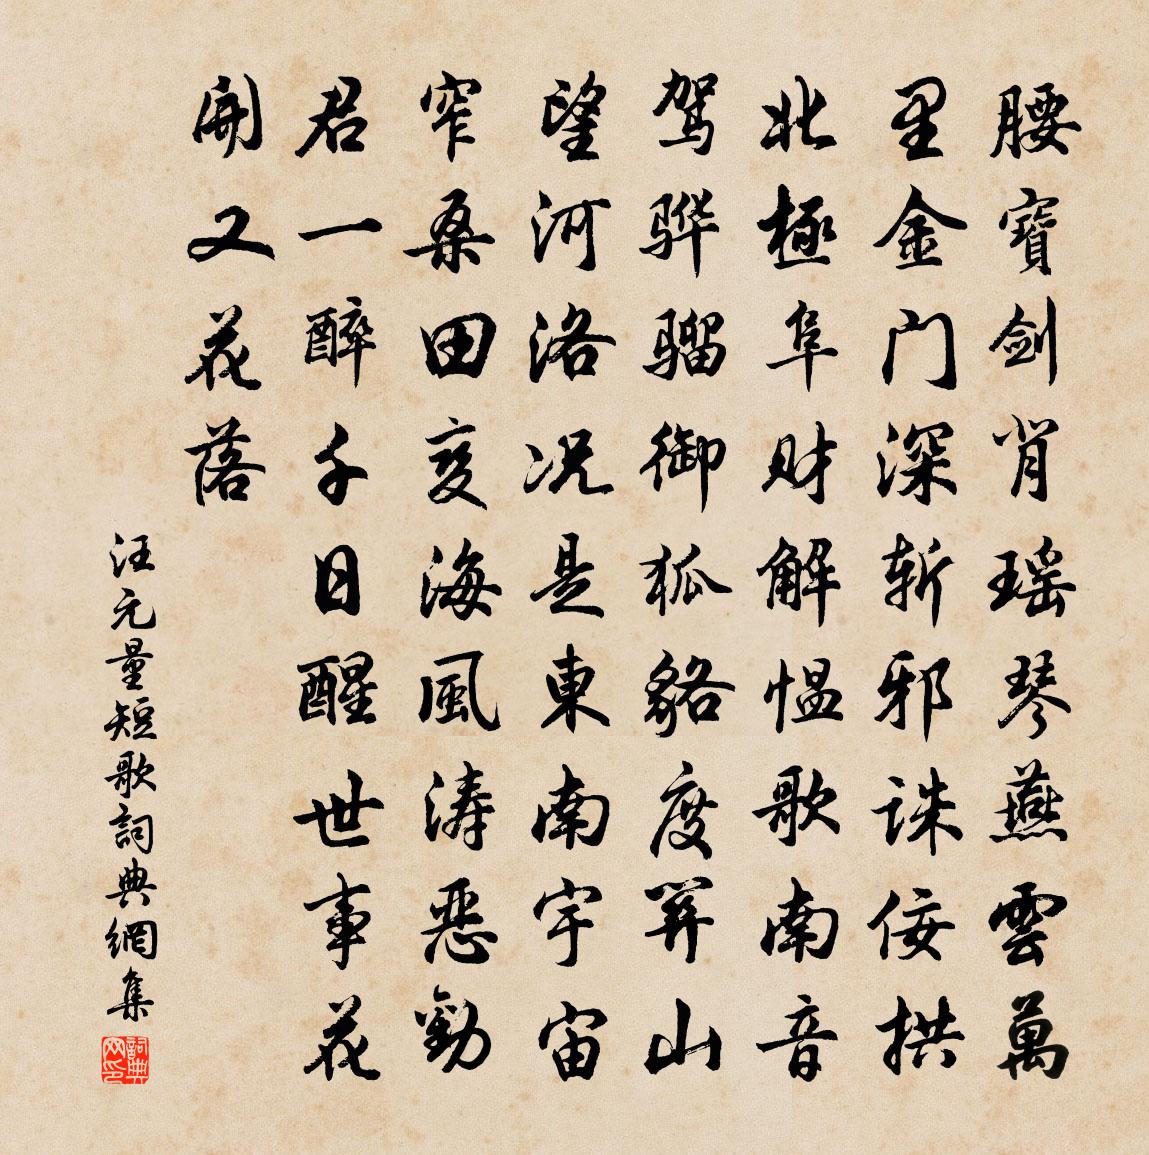 腰寶剑背瑶琴燕雲萬
里金门深斩邪诛佞拱
北極阜财解愠歌南音
驾骅骝御狐貉度関山
望河洛况是東南宇宙
窄桑田变海風涛恶勸
君一醉千日醒世事花
開又花落
汪元量短歌詞典網集
詞典网印